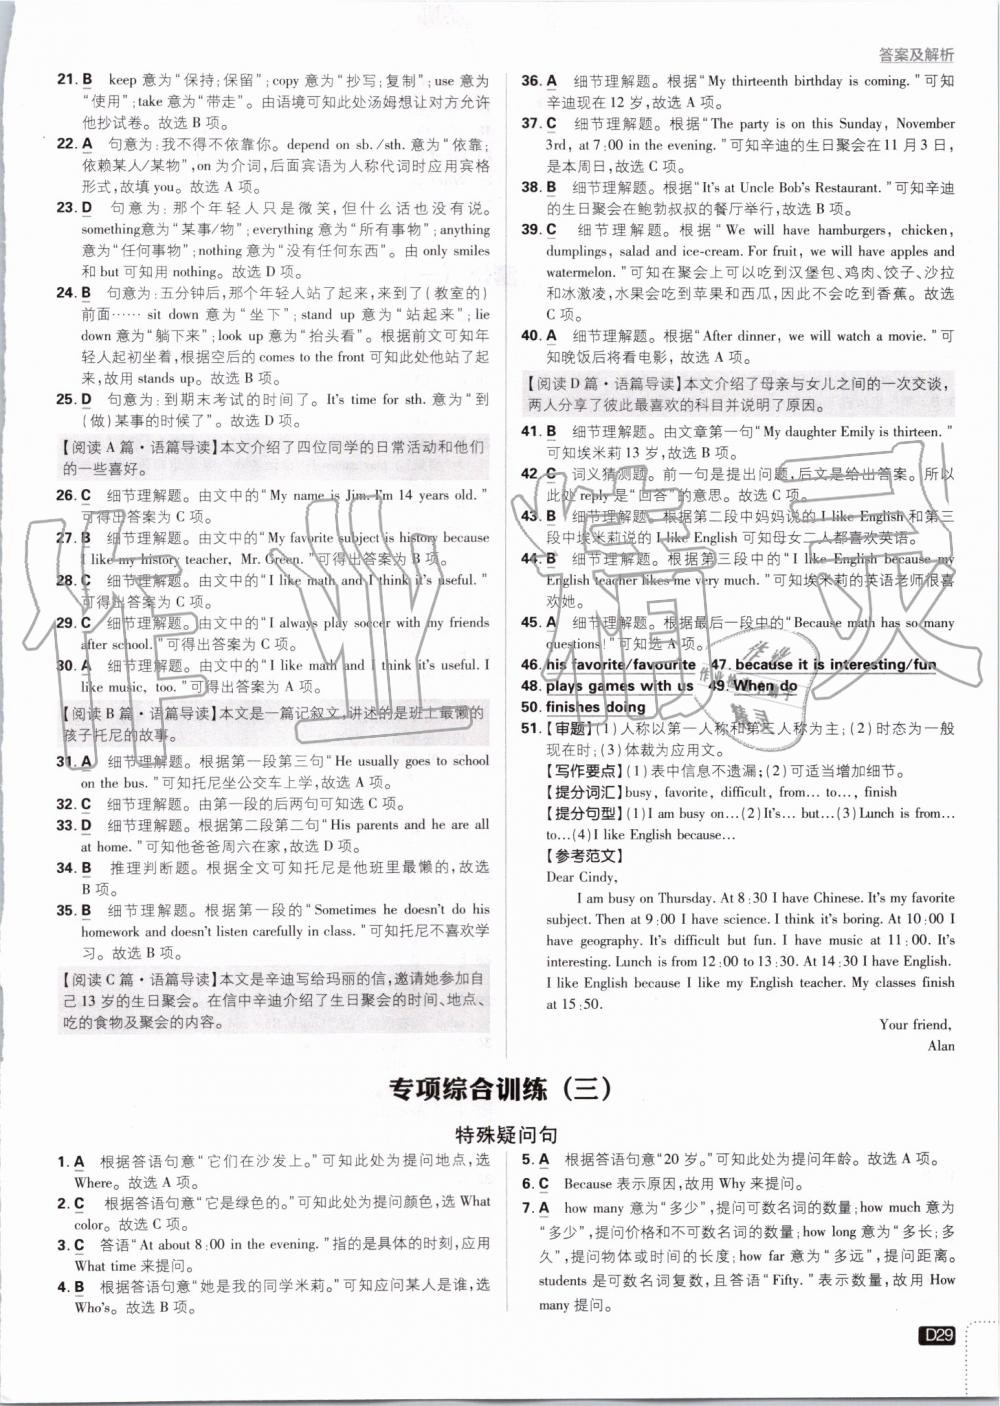 答案及解析
21. B　keep 意为“保持;保留”;copy 意为“抄写;复制”;use 意为
“使用”;take 意为“带走”。由语境可知此处汤姆想让对方允许
他抄试卷。故选 B 项。
22. A　句意为:我不得不依靠你。depend on sb./sth. 意为“依靠;
依赖某人/某物”,on 为介词,后面宾语为人称代词时应用宾格
形式,故填 you。故选 A 项。
23. D　句意为:那个年轻人只是微笑,但什么话也没有说。
something意为“某事/物”;everything 意为“所有事物”;anything
意为“任何事物”;nothing 意为“没有任何东西”。由 only smiles
和 but 可知用 nothing。故选 D 项。
24. B　句意为:五分钟后,那个年轻人站了起来,来到了(教室的)
前面…… sit down 意为“坐下”;stand up 意为“站起来”;lie
down 意为“躺下来”;look up 意为“抬头看”。根据前文可知年
轻人起初坐着,根据空后的 comes to the front 可知此处他站了起
来,故用 stands up。故选 B 项。
25. D　句意为:到期末考试的时间了。It's time for sth. 意为“到
(做)某事的时候了”。故选 D 项。
【阅读 A 篇·语篇导读】本文介绍了四位同学的日常活动和他们
的一些喜好。
26. C　细节理解题。由文中的“My name is Jim. I'm 14 years old.”
可得出答案为 C 项。
27. B　细节理解题。由文中的“My favorite subject is history because
I like my history teacher, Mr. Green.”可得出答案为 B 项。
28. C　细节理解题。由文中的“I like math and I think it's useful.”
可得出答案为 C 项。
29. C　细节理解题。由文中的“I always play soccer with my friends
after school.”可得出答案为 C 项。
30. A　细节理解题。由文中的“I like math and I think it's useful. I
like music, too.”可得出答案为 A 项。
【阅读 B 篇·语篇导读】本文是一篇记叙文,讲述的是班上最懒的
孩子托尼的故事。
31. A　细节理解题。根据第一段第三句“He usually goes to school
on the bus.”可知托尼坐公交车上学,故选 A 项。
32. C　细节理解题。由第一段的后两句可知选 C 项。
33. D　细节理解题。根据第二段第二句“His parents and he are all
at home.”可知他爸爸周六在家,故选 D 项。
34. B　推理判断题。根据全文可知托尼是他班里最懒的,故选
B 项。
35. B　细节理解题。根据第一段的“Sometimes he doesn't do his
homework and doesn't listen carefully in class.”可知托尼不喜欢学
习。故选 B 项。
【阅读 C 篇·语篇导读】本文是辛迪写给玛丽的信,邀请她参加自
己 13 岁的生日聚会。在信中辛迪介绍了生日聚会的时间、地点、
吃的食物及聚会的内容。
36. A　细节理解题。根据“My thirteenth birthday is coming.”可知
辛迪现在 12 岁,故选 A 项。
37. C　细节理解题。根据“The party is on this Sunday, November
3rd, at 7:00 in the evening.”可知辛迪的生日聚会在 11 月 3 日,
是本周日,故选 C 项。
38. B　细节理解题。根据“It's at Uncle Bob's Restaurant.”可知辛迪
的生日聚会在鲍勃叔叔的餐厅举行,故选 B 项。
39. C　细节理解题。根据“We will have hamburgers, chicken,
dumplings, salad and ice-cream. For fruit, we will have apples and
watermelon.”可知在聚会上可以吃到汉堡包、鸡肉、饺子、沙拉
和冰激凌,水果会吃到苹果和西瓜,因此不会吃到香蕉。故选
C 项。
40. A　细节理解题。根据“After dinner, we will watch a movie.”可
知晚饭后将看电影, 故选 A 项。
【阅读 D 篇·语篇导读】本文介绍了母亲与女儿之间的一次交谈,
两人分享了彼此最喜欢的科目并说明了原因。
41. B　细节理解题。由文章第一句“My daughter Emily is thirteen.”
可知埃米莉 13 岁,故选 B 项。
42. C　词义猜测题。前一句是提出问题,后文是给出答案。所以
此处 reply 是“回答”的意思。故选 C 项。
43. B　细节理解题。根据第二段中妈妈说的 I like English 和第三
段中埃米莉说的 I like English 可知母女二人都喜欢英语。
44. B　细节理解题。根据第三段中的“I like English because my
English teacher likes me very much.”可知埃米莉的英语老师很喜
欢她。
45. A　细节理解题。根据最后一段中的“Because math has so many
questions!”可知选 A 项。
46. his favorite/favourite　47. because it is interesting/fun
48. plays games with us　49. When do
50. finishes doing
51.【审题】(1)人称以第一人称和第三人称为主;(2)时态为一般
现在时;(3)体裁为应用文。
【写作要点】(1)表中信息不遗漏;(2)可适当增加细节。
【提分词汇】busy, favorite, difficult, from… to…, finish
【提分句型】(1)I am busy on…(2)It's… but…(3)Lunch is from…
to…(4)I like English because…
【参考范文】
Dear Cindy,
I am busy on Thursday. At 8:30 I have Chinese. It's my favorite
subject. Then at 9:00 I have science. I think it's boring. At 10:00 I
have geography. It's difficult but fun. I have music at 11:00. It's
interesting. Lunch is from 12:00 to 13:30. At 14:30 I have English.
I like English because I like my English teacher. My classes finish
at 15:50.
Your friend,
Alan
专项综合训练(三)
特殊疑问句
1. A　根据答语句意“它们在沙发上。”可知此处为提问地点,选
Where。故选 A 项。
2. C　根据答语句意“它是绿色的。”可知此处为提问颜色,选 What
color。故选 C 项。
3. C　答语“At about 8:00 in the evening.”指的是具体的时刻,应用
What time 来提问。
4. B　根据答语句意“她是我的同学米莉。”可知应问某人是谁,选
Who's。故选 B 项。
5. A　根据答语句意“20 岁。”可知此处为提问年龄。故选 A 项。
6. C　Because 表示原因,故用 Why 来提问。
7. A　how many 意为“多少”,提问可数名词的数量;how much 意为
“多少”,提问价格和不可数名词的数量;how long 意为“多长;多
久”,提问物体或时间的长度;how far 意为“多远”,提问距离。
students 是可数名词复数,且答语“Fifty.”表示数量,故用 How
many 提问。
D29
作业精灵